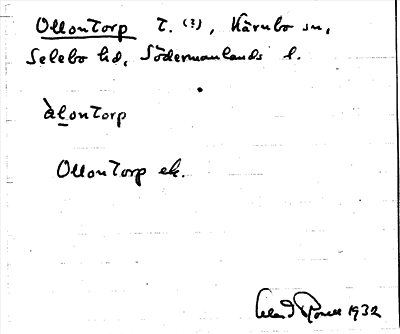 Ollontorp t. (?), Kärnbo sn,
Selebo hd, Södermanlands l.
àlontorp
Ollontorp ek.
1932